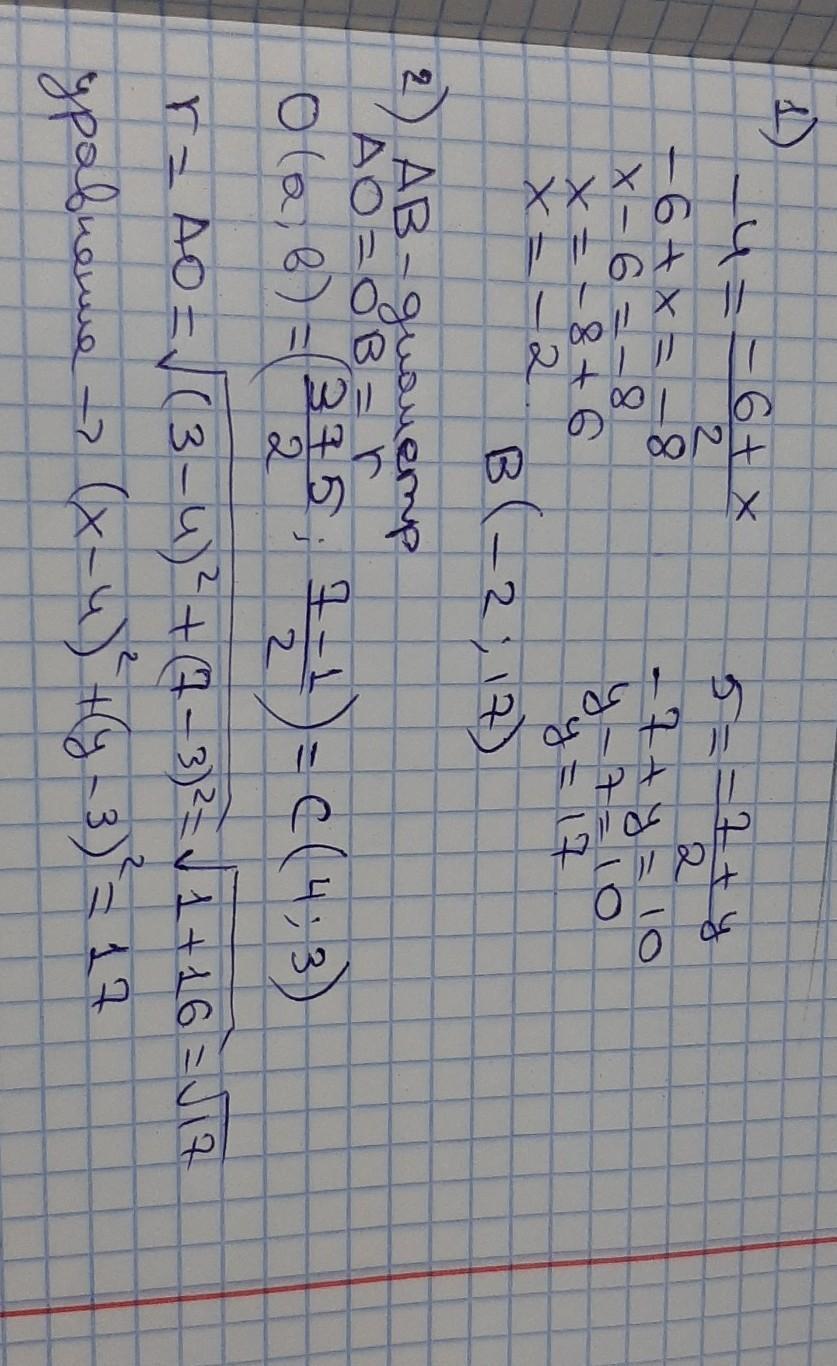 1) -4 = (-6 + x)/2
-6 + x = -8
x - 6 = -8
x = -8 + 6
x = -2.
5 = (-7 + y)/2
-7 + y = 10
y - 7 = 10
y = 17
B (-2 ; 17)
2) AB - диаметр
AO = OB = r
O (a; в) = ((3+5)/2 ; (7-1)/2) = C (4; 3)
r = AO = √((3-4)² + (7-3)²) = √(1+16) = √17
уравнение → (x-4)² + (y-3)² = 17